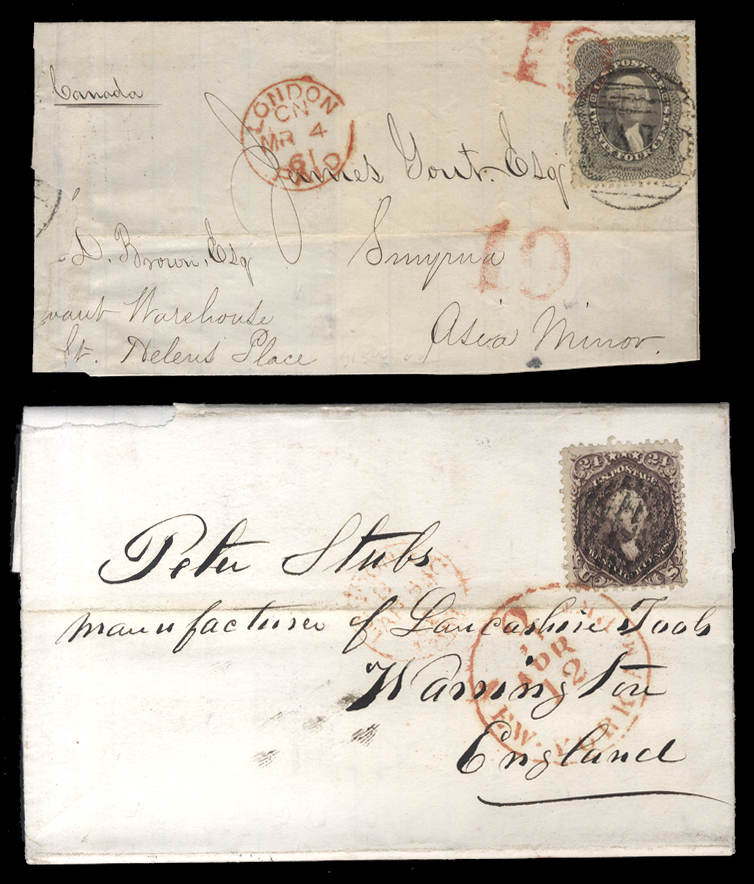 Canada
19
U.S. POSTAGE
TWENTY FOUR CENTS
LONDON
CN
MR 4
61
PAID
James Gout. Esq
D. Brown, Esq
Smyrna
10
vant Warehouse
Asia Minor.
St. Helens Place
24 24
U.S. POSTAGE
Peter Stubs
manufacturer of Lancashire Tools
APR
12
NEW YORK
Warrington
England